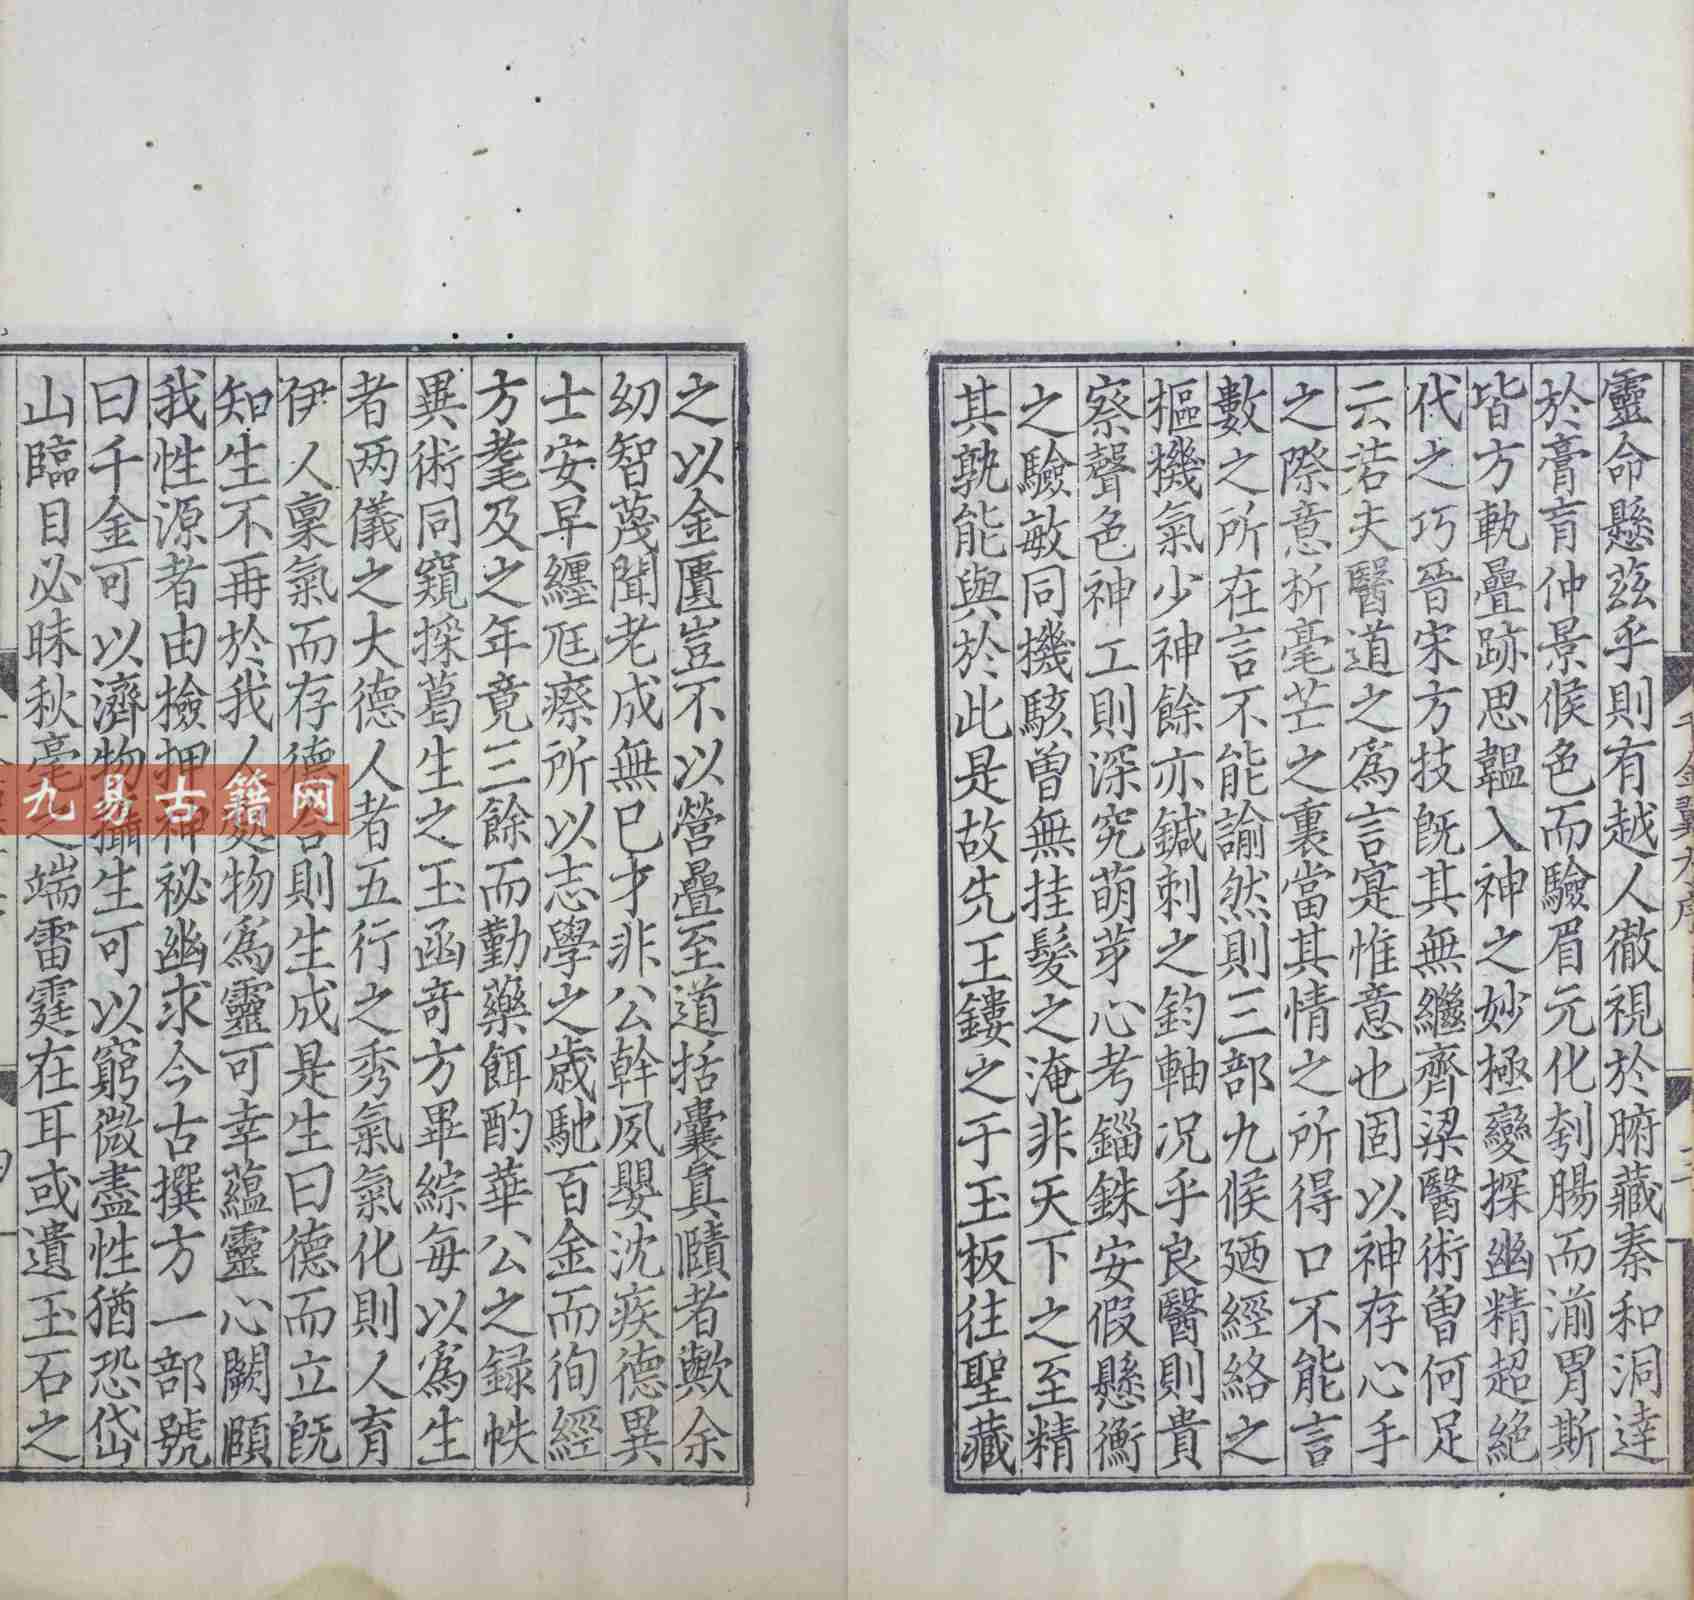 靈命懸茲乎則有越人徹視於腑藏秦和洞達
於膏肓仲景候色而驗眉元化刳腸而湔胃斯
皆方軌疊跡思韞入神之妙極變探幽精超絶
代之巧晉宋方技旣其無繼齊梁醫術曽何足
云若夫醫道之爲言寔惟意也固以神存心手
之際意析毫芒之裏當其情之所得口不能言
數之所在言不能諭然則三部九候廼經絡之
樞機氣少神餘亦鍼刺之鈞軸况乎良醫則貴
察聲色神工則深究萌芽心考錙銖安假懸衡
之驗敏同機駭曽無挂髮之淹非天下之至精
其孰能與於此是故先王鏤之于玉板往聖藏
千金翼方序
二
之以金匱豈不以營疊至道括囊真賾者歟余
幼智蔑聞老成無已才非公幹夙嬰沈疾德異
士安早纏尫瘵所以志學之歲馳百金而徇經
方耄及之年竟三餘而勤藥餌酌華公之録帙
異術同窺採葛生之玉函奇方畢綜每以爲生
者两儀之大德人者五行之秀氣氣化則人育
伊人稟氣而存德合則生成是生曰德而立旣
知生不再於我人處物爲靈可幸藴靈心闕頤
我性源者由檢押神祕幽求今古撰方一部號
曰千金可以濟物攝生可以窮微盡性猶恐岱
山臨目必昧秋毫之端雷霆在耳或遺玉石之
九易古籍网